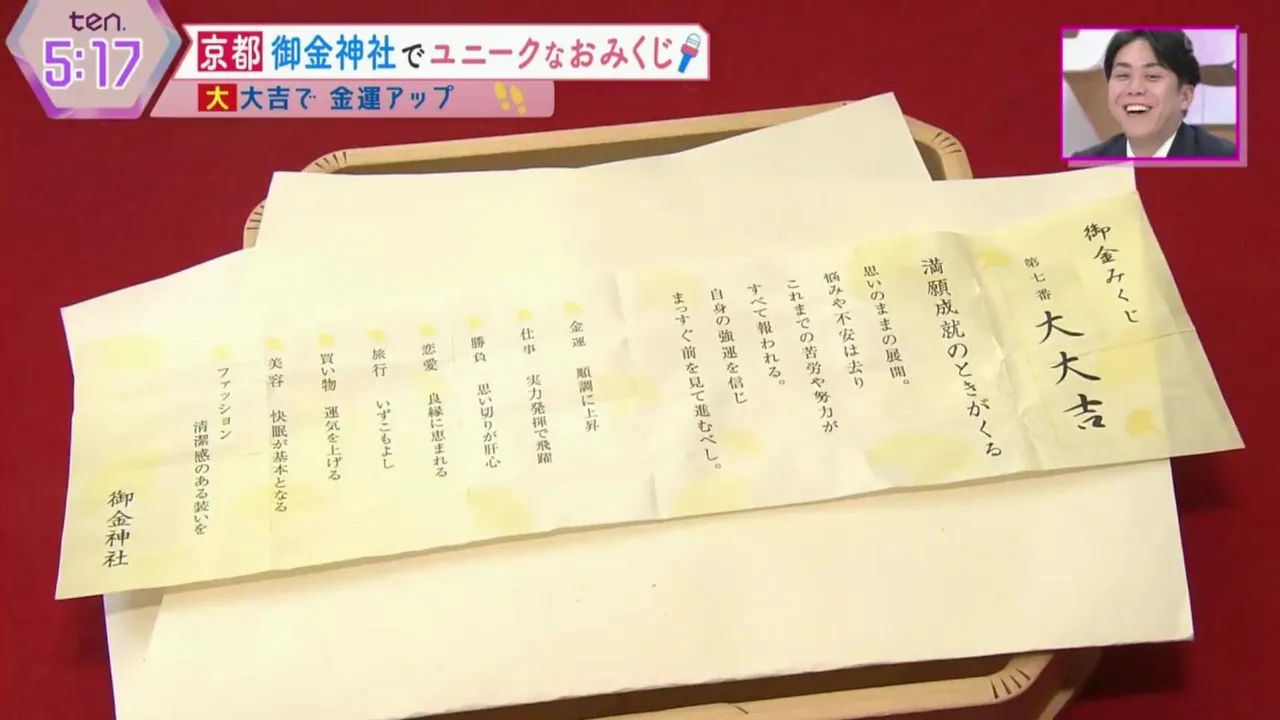 ten.
5:17
京都 御金神社でユニークなおみくじ
大 大吉で 金運アップ
御金みくじ
第七番 大大吉
満願成就のときがくる
思いのままの展開。
悩みや不安は去り
これまでの苦労や努力が
すべて報われる。
自身の強運を信じ
まっすぐ前を見て進むべし。
金運 順調に上昇
仕事 実力発揮で飛躍
勝負 思い切りが肝心
恋愛 良縁に恵まれる
旅行 いずこもよし
買い物 運気を上げる
美容 快眠が基本となる
ファッション
清潔感のある装いを
御金神社